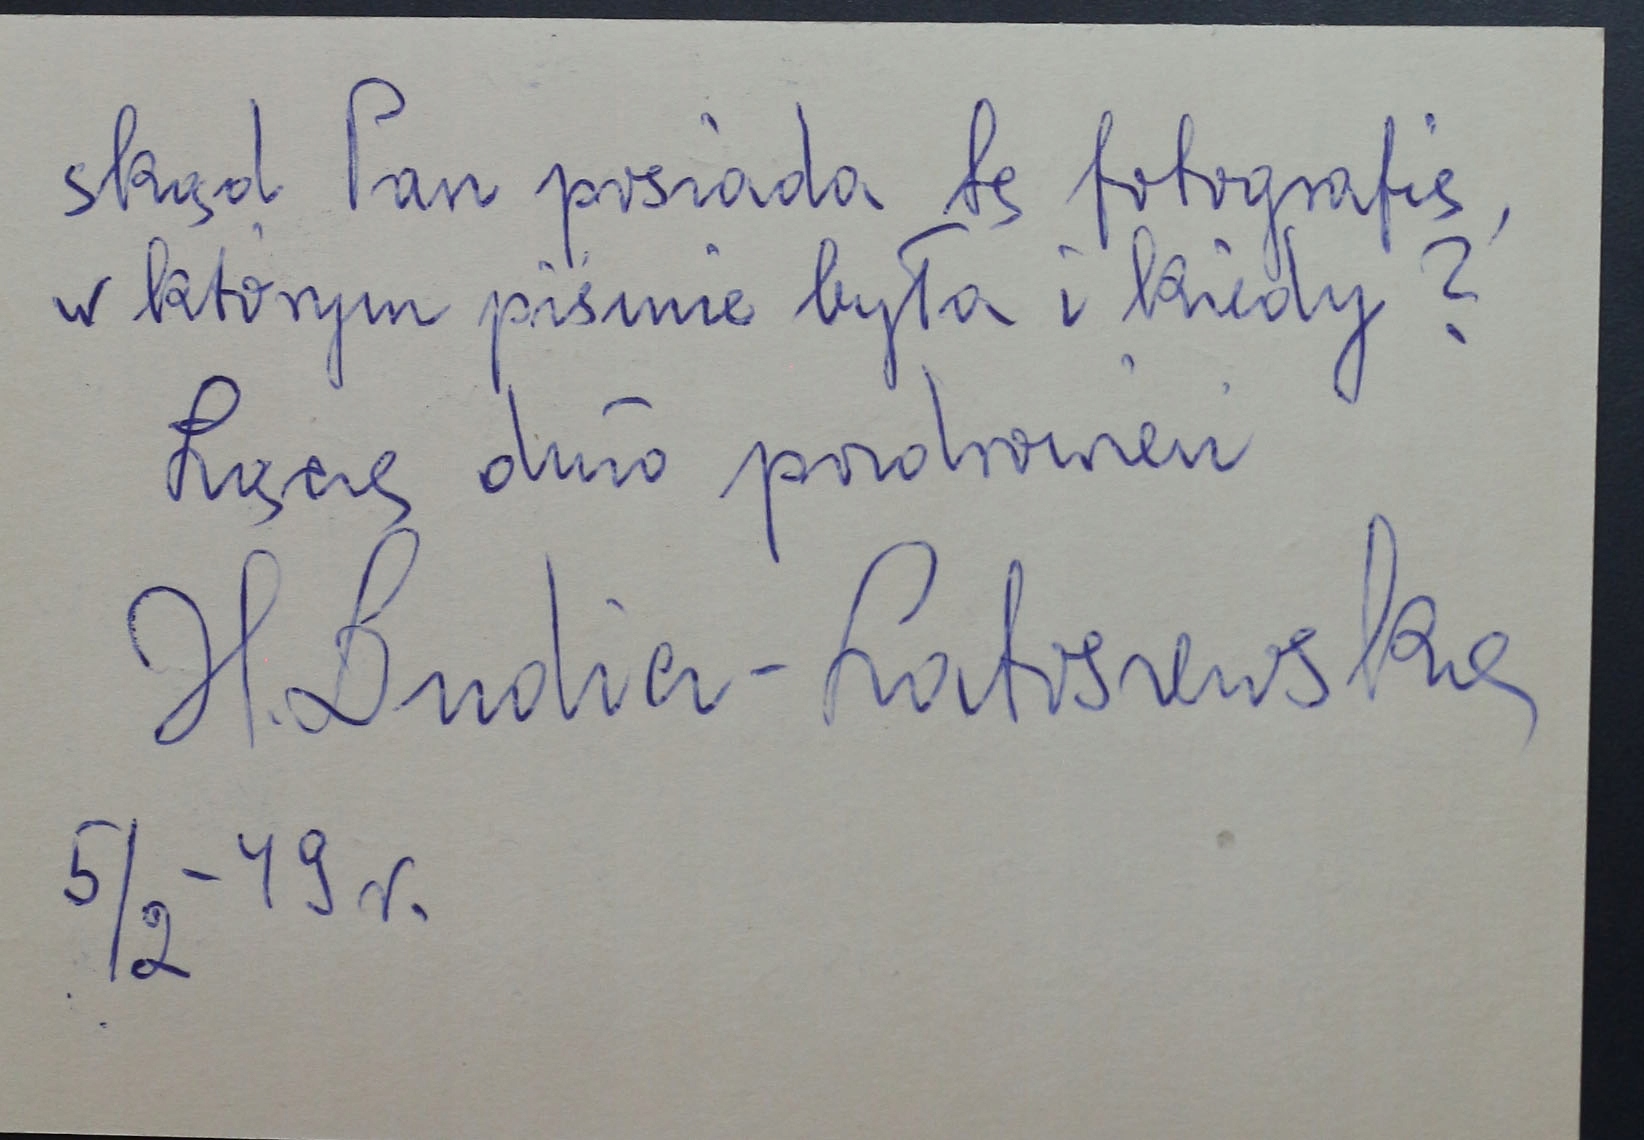 skąd Pan posiada tę fotografię,
w którym piśmie była i kiedy?
Łączę dużo pozdrowień
H. Dudicz-Latoszewska
5/2-79 r.